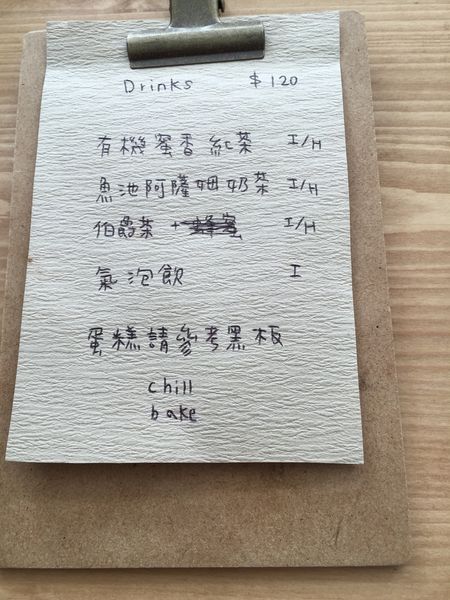 Drinks $120
有機蜜香紅茶 I/H
魚池阿薩姆奶茶 I/H
伯爵茶 + I/H
氣泡飲 I
蛋糕請參考黑板
chill
bake